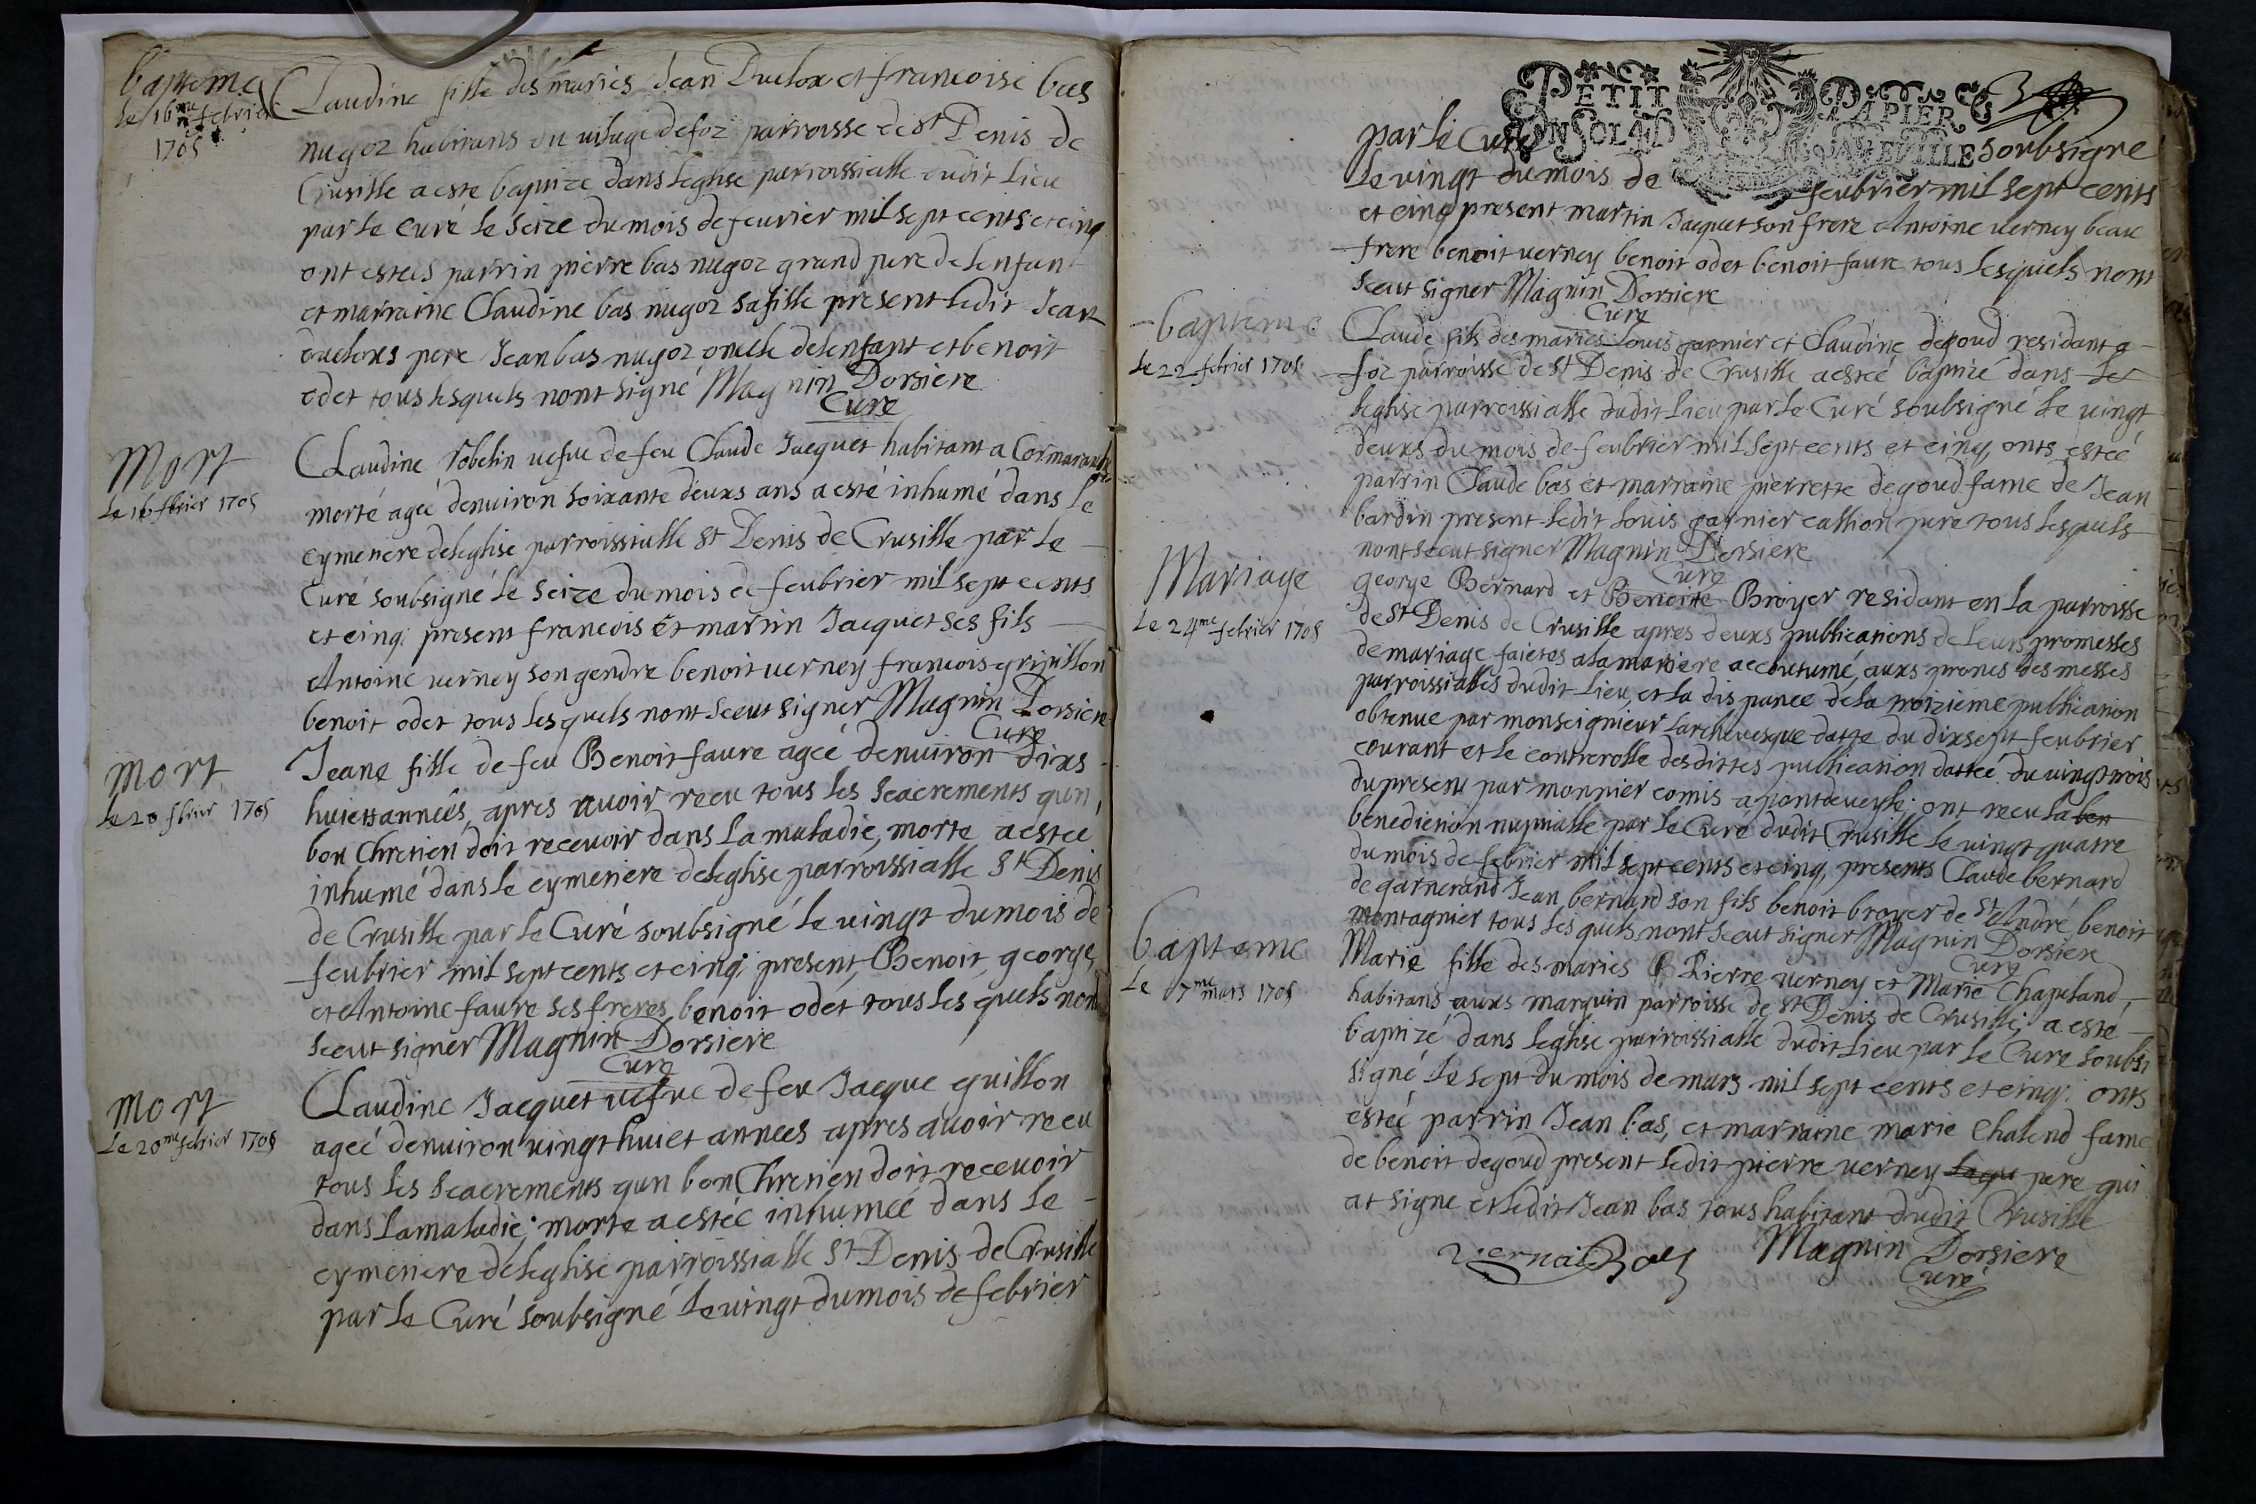 bapteme
le 16me febrier
1705
Claudine fille des maries Jean Duclox et francoise bas
nugoz habitans du vilage de foz parroisse de St Denis de
Crusille a este baptize dans leglise parroissialle dudit lieu
par le curé le seize du mois de feurier mil sept cents et cinq
ont estees parrin pierre bas nugoz grand pere de lenfant
et marraine Claudine bas nugoz sa fille present ledit Jean
ducloxs pere Jean bas nugoz oncle de lenfant et benoit
odet tous lesquels nont signé Magnin Dorsiere
Curé
Mort
le 16 fbrier 1705
Claudine robelin uefue de feu Claude Jacquet habitant a Cormaranche
morte ageé denuiron soixante deuxs ans a esté inhumé dans le
cymeniere deleglise parroissialle St Denis de Crusille par le
Curé soubsigné le seize du mois de feubrier mil sept cents
et cinq present francois et martin Jacquet ses fils
Antoine verney son gendre benoit verney francois gripillon
benoit odet tous lesquels nont sceut signer Magnin Dorsiere
Curé
Mort
le 20 fbrier 1705
Jeane fille de feu Benoit faure ageé denuiron dixs
huietts anneés, apres auoir receu tous les seacrements qun
bon Chretien doit recevoir dans la maladie, morte a esteé
inhumé dans le cymeniere deleglise parroissialle St Denis
de Crusille par le Curé soubsigné le vingt du mois de
feubrier mil sept cents et cinq present Benoit, george,
et Antoine faure ses freres, benoit odet, tous les quels nont
sceut signer Magnin Dorsiere
Curé
Mort
Le 20me febrier 1705
Claudine Jacquet uefue de feu Jacque guillon
ageé denuiron vingt huiet annees apres auoir receu
tous les seacrements qun bon Chretien doit recevoir
dans la maladie, morte a esteé inhumeé dans le
cymeniere deleglise parroissialle St Denis de Crusille
par le Curé soubsigné le vingt du mois de febrier
PETIT PAPIER
3
par le Curé soubsigne
le vingt du mois de feubrier mil sept cents
et cinq present martin Jacquet son frere Antoine verney beau
frere benoit verney benoit odet benoit faure tous lesquels nont
sceut signer Magnin Dorsiere
Curé
bapteme
le 22 febrier 1705
Claude fils des maries Louis garnier et Claudine degoud residant a
foz parroisse de St Denis de Crusille a esteé baptizé dans le
leglise parroissialle dudit lieu par le Curé soubsigné le vingt
deuxs du mois de feubrier mil sept cents et cinq, onts esteé
parrin Claude bas et marraine pierrette degoud fame de Jean
bardin present ledit Louis garnier pere tous lesquels
nont sceut signer Magnin Dorsiere
Curé
Mariage
Le 24me febrier 1705
george Bernard et Benoite Broyer residant en la parroisse
de St Denis de Crusille apres deuxs publications de leurs promesses
de mariage faietes a la maniere accoutumé, auxs prones des messes
parroissialles dudit lieu, et la dispance de la troizieme publication
obtenue par monseignieur larchevesque datte du dixsept feubrier
courant et le controrolle desdittes publication datteé du vingt trois
du present par monnier comis a pontdeveyle, ont receu la ben
benediction nuptialle par le Curé dudit Crusille le vingt quatre
du mois de febrier mil sept cents et cinq, presents Claude bernard
de garnerand Jean bernard son fils benoit broyer de St André benoit
montagnier tous lesquels nont sceut signer Magnin Dorsiere
Curé
bapteme
Le 7me mars 1705
Marie fille des maries Pierre verney et Marie Chapeland,
habitans auxs marquin parroisse de St Denis de Crusille, a esté
baptizé dans leglise parroissialle dudit lieu par le Curé soubsi
signé le sept du mois de mars mil sept cents et cinq; onts
esteé parrin Jean bas, et marraine marie Chalend fame
de benoit degoud present ledit pierre verney lequ pere qui
at signe et ledit Jean bas tous habitant dudit Crusille
vernai Bas Magnin Dorsiere
Curé